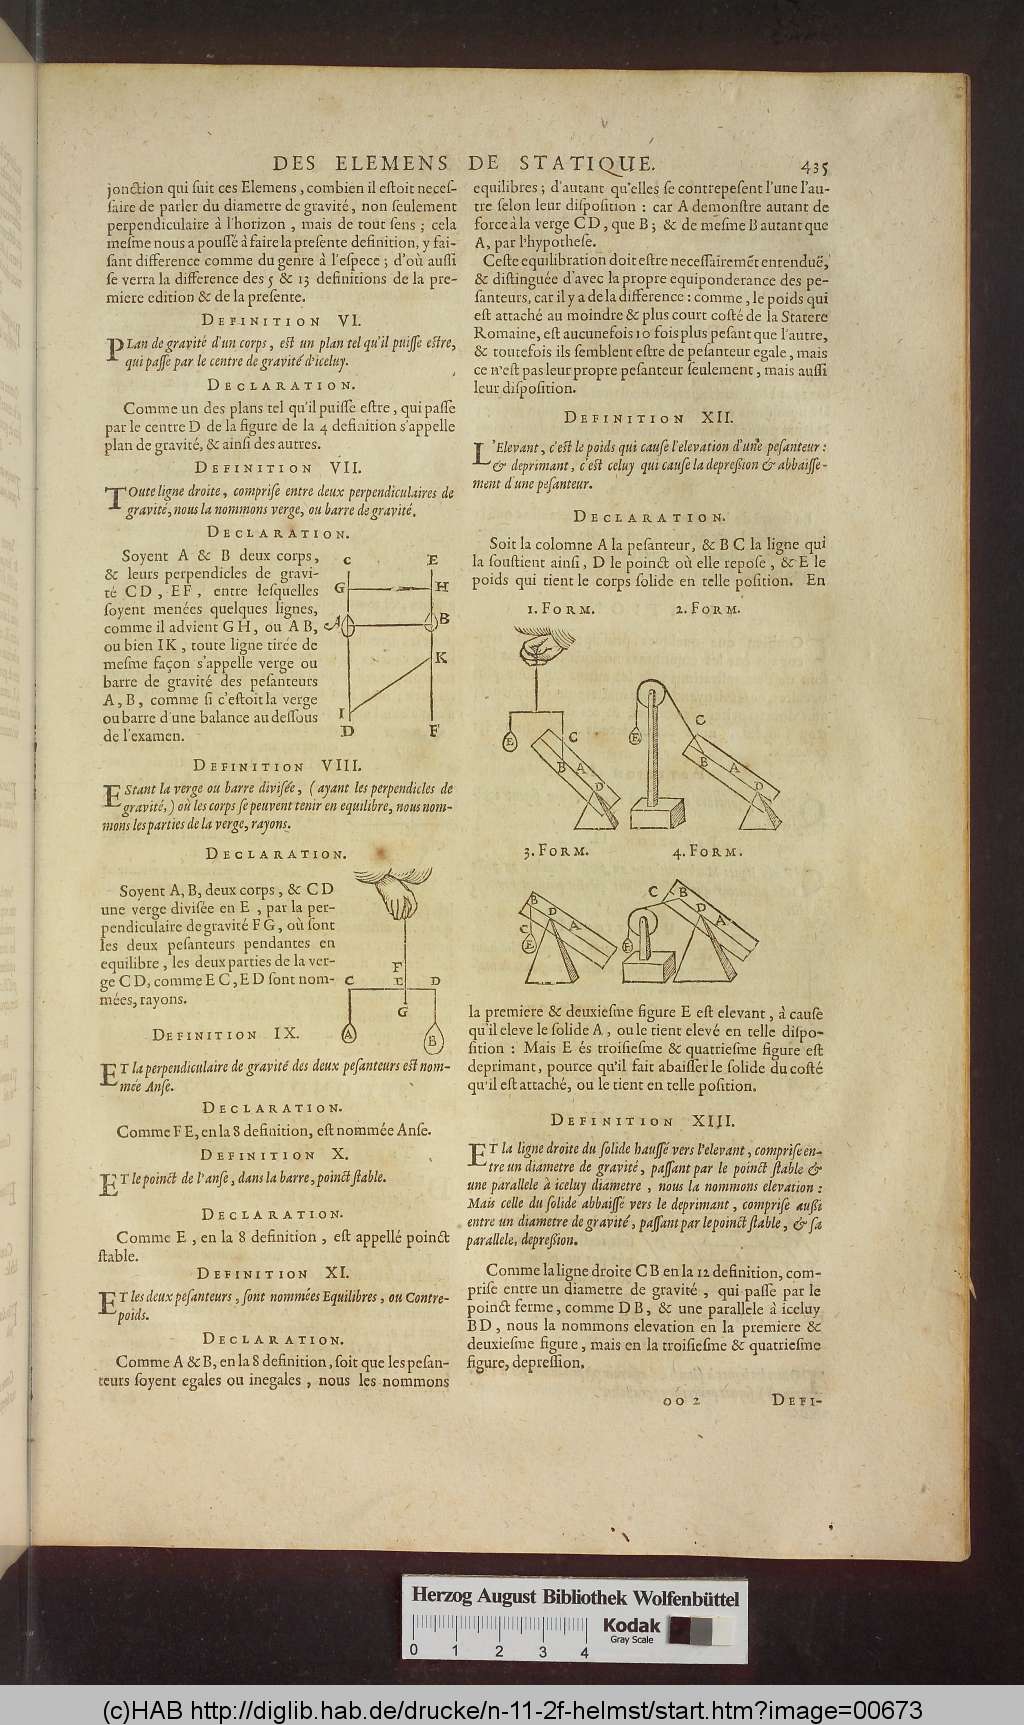 DES ELEMENS DE STATIQUE. 435
jonction qui ſuit ces Elemens, combien il eſtoit neceſ-
ſaire de parler du diametre de gravité, non ſeulement
perpendiculaire à l'horizon, mais de tout ſens; cela
meſme nous a pouſſé à faire la preſente definition, y fai-
ſant difference comme du genre à l'eſpece; d'où auſſi
ſe verra la difference des 5 & 13 definitions de la pre-
miere edition & de la preſente.
DEFINITION VI.
PLan de gravité d'un corps, eſt un plan tel qu'il puiſſe eſtre,
qui paſſe par le centre de gravité d'iceluy.
DECLARATION.
Comme un des plans tel qu'il puiſſe eſtre, qui paſſe
par le centre D de la figure de la 4 definition s'appelle
plan de gravité, & ainſi des autres.
DEFINITION VII.
TOute ligne droite, compriſe entre deux perpendiculaires de
gravité, nous la nommons verge, ou barre de gravité.
DECLARATION.
Soyent A & B deux corps,
& leurs perpendicles de gravi-
té CD, EF, entre leſquelles
ſoyent menées quelques lignes,
comme il advient GH, ou AB,
ou bien IK, toute ligne tirée de
meſme façon s'appelle verge ou
barre de gravité des peſanteurs
A, B, comme ſi c'eſtoit la verge
ou barre d'une balance au deſſous
de l'examen.
C E
G H
A B
K
I
D F
DEFINITION VIII.
EStant la verge ou barre diviſée, (ayant les perpendicles de
gravité,) où les corps ſe peuvent tenir en equilibre, nous nom-
mons les parties de la verge, rayons.
DECLARATION.
Soyent A, B, deux corps, & CD
une verge diviſée en E, par la per-
pendiculaire de gravité FG, où ſont
les deux peſanteurs pendantes en
equilibre, les deux parties de la ver-
ge CD, comme EC, ED ſont nom-
mées, rayons.
F
C E D
G
A B
DEFINITION IX.
ET la perpendiculaire de gravité des deux peſanteurs eſt nom-
mée Anſe.
DECLARATION.
Comme FE, en la 8 definition, eſt nommée Anſe.
DEFINITION X.
ET le poinct de l'anſe, dans la barre, poinct ſtable.
DECLARATION.
Comme E, en la 8 definition, eſt appellé poinct
ſtable.
DEFINITION XI.
ET les deux peſanteurs, ſont nommées Equilibres, ou Contre-
poids.
DECLARATION.
Comme A & B, en la 8 definition, ſoit que les peſan-
teurs ſoyent egales ou inegales, nous les nommons
equilibres; d'autant qu'elles ſe contrepeſent l'une l'au-
tre ſelon leur diſpoſition: car A demonſtre autant de
force à la verge CD, que B; & de meſme B autant que
A, par l'hypotheſe.
Ceſte equilibration doit eſtre neceſſairemẽt entenduë,
& diſtinguée d'avec la propre equiponderance des pe-
ſanteurs, car il y a de la difference: comme, le poids qui
eſt attaché au moindre & plus court coſté de la Statere
Romaine, eſt aucunefois 10 fois plus peſant que l'autre,
& toutefois ils ſemblent eſtre de peſanteur egale, mais
ce n'eſt pas leur propre peſanteur ſeulement, mais auſſi
leur diſpoſition.
DEFINITION XII.
L'Elevant, c'eſt le poids qui cauſe l'elevation d'une peſanteur:
& deprimant, c'eſt celuy qui cauſe la depreſſion & abbaiſſe-
ment d'une peſanteur.
DECLARATION.
Soit la colomne A la peſanteur, & BC la ligne qui
la ſouſtient ainſi, D le poinct où elle repoſe, & E le
poids qui tient le corps ſolide en telle poſition. En
1. FORM. 2. FORM.
E C B A D
E C B A D
3. FORM. 4. FORM.
B D A C E
C B D A E
la premiere & deuxieſme figure E eſt elevant, à cauſe
qu'il eleve le ſolide A, ou le tient elevé en telle diſpo-
ſition: Mais E és troiſieſme & quatrieſme figure eſt
deprimant, pource qu'il fait abaiſſer le ſolide du coſté
qu'il eſt attaché, ou le tient en telle poſition.
DEFINITION XIII.
ET la ligne droite du ſolide hauſſé vers l'elevant, compriſe en-
tre un diametre de gravité, paſſant par le poinct ſtable &
une parallele à iceluy diametre, nous la nommons elevation:
Mais celle du ſolide abbaiſſé vers le deprimant, compriſe auſſi
entre un diametre de gravité, paſſant par le poinct ſtable, & ſa
parallele, depreſſion.
Comme la ligne droite CB en la 12 definition, com-
priſe entre un diametre de gravité, qui paſſe par le
poinct ferme, comme DB, & une parallele à iceluy
BD, nous la nommons elevation en la premiere &
deuxieſme figure, mais en la troiſieſme & quatrieſme
figure, depreſſion.
OO 2 DEFI-
Herzog August Bibliothek Wolfenbüttel
Kodak
Gray Scale
0 1 2 3 4
(c)HAB http://diglib.hab.de/drucke/n-11-2f-helmst/start.htm?image=00673